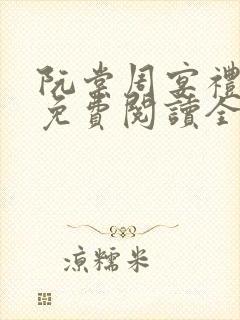 阮棠周宴禮
免費閱讀全
涼糯米